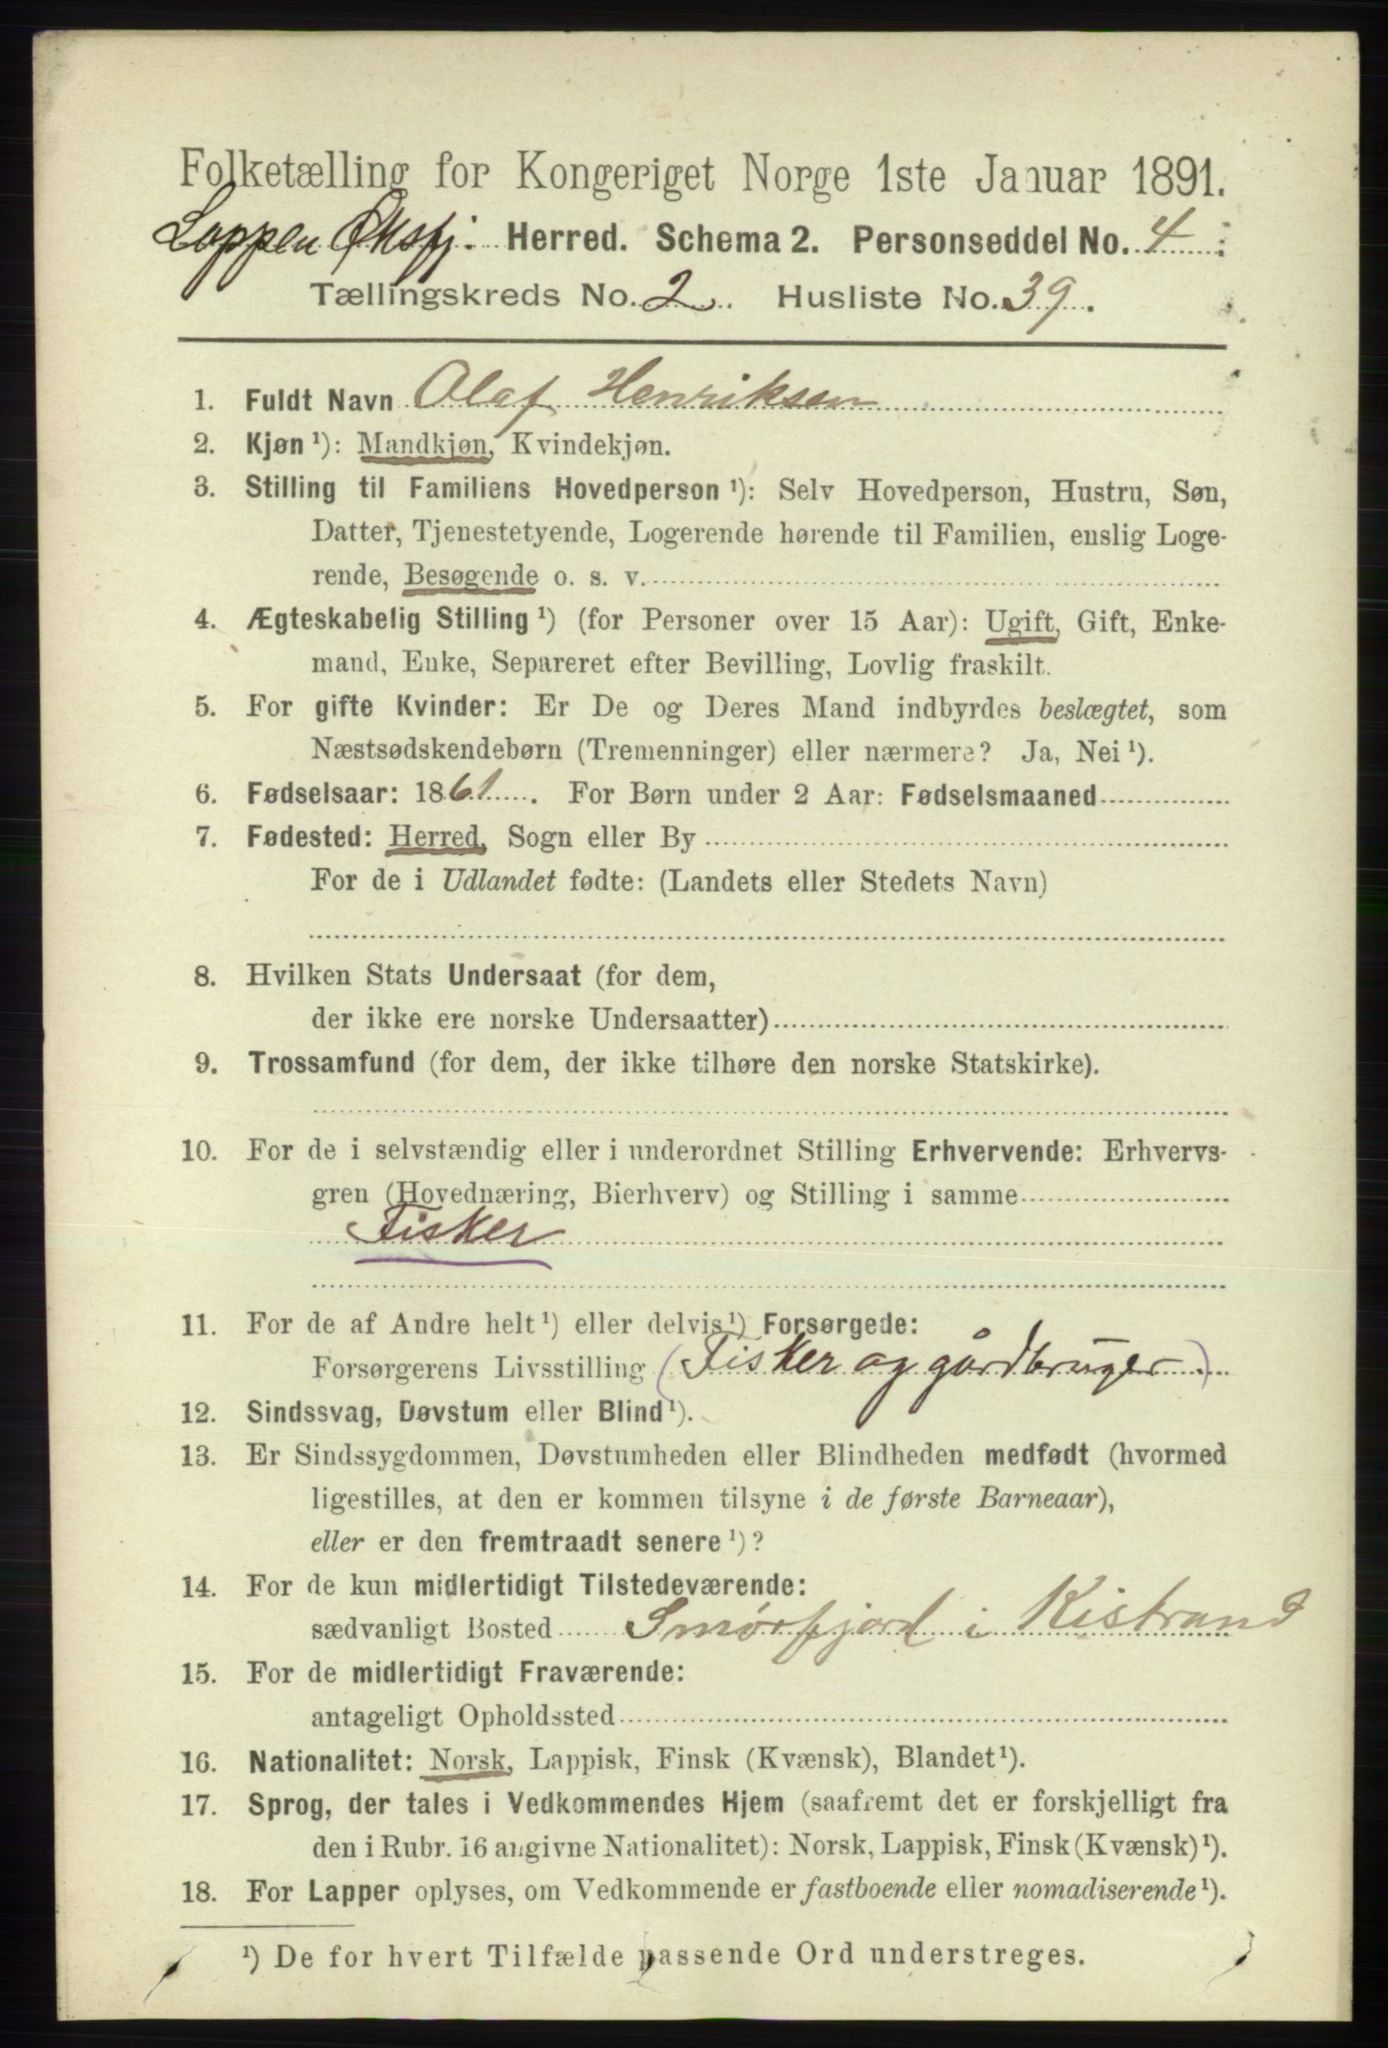 Folketælling for Kongeriget Norge 1ste Januar 1891.
Loppen Øksfj. Herred. Schema 2. Personseddel No. 4.
Tællingskreds No. 2. Husliste No. 39.
1. Fuldt Navn Olaf Henriksen
2. Kjøn¹): Mandkjøn, Kvindekjøn.
3. Stilling til Familiens Hovedperson¹): Selv Hovedperson, Hustru, Søn,
Datter, Tjenestetyende, Logerende hørende til Familien, enslig Loge-
rende, Besøgende o. s. v.
4. Ægteskabelig Stilling¹) (for Personer over 15 Aar): Ugift, Gift, Enke-
mand, Enke, Separeret efter Bevilling, Lovlig fraskilt.
5. For gifte Kvinder: Er De og Deres Mand indbyrdes beslægtet, som
Næstsødskendebørn (Tremenninger) eller nærmere? Ja, Nei¹).
6. Fødselsaar: 1861. For Børn under 2 Aar: Fødselsmaaned
7. Fødested: Herred, Sogn eller By
For de i Udlandet fødte: (Landets eller Stedets Navn)
8. Hvilken Stats Undersaat (for dem,
der ikke ere norske Undersaatter)
9. Trossamfund (for dem, der ikke tilhøre den norske Statskirke).
10. For de i selvstændig eller i underordnet Stilling Erhvervende: Erhvervs-
gren (Hovednæring, Bierhverv) og Stilling i samme
Fisker
11. For de af Andre helt¹) eller delvis¹) Forsørgede:
Forsørgerens Livsstilling (Fisker og gårdbruger)
12. Sindssvag, Døvstum eller Blind¹).
13. Er Sindssygdommen, Døvstumheden eller Blindheden medfødt (hvormed
ligestilles, at den er kommen tilsyne i de første Barneaar),
eller er den fremtraadt senere¹)?
14. For de kun midlertidigt Tilstedeværende:
sædvanligt Bosted Smørfjord i Kistrand
15. For de midlertidigt Fraværende:
antageligt Opholdssted
16. Nationalitet: Norsk, Lappisk, Finsk (Kvænsk), Blandet¹).
17. Sprog, der tales i Vedkommendes Hjem (saafremt det er forskjelligt fra
den i Rubr. 16 angivne Nationalitet): Norsk, Lappisk, Finsk (Kvænsk)¹).
18. For Lapper oplyses, om Vedkommende er fastboende eller nomadiserende¹).
¹) De for hvert Tilfælde passende Ord understreges.